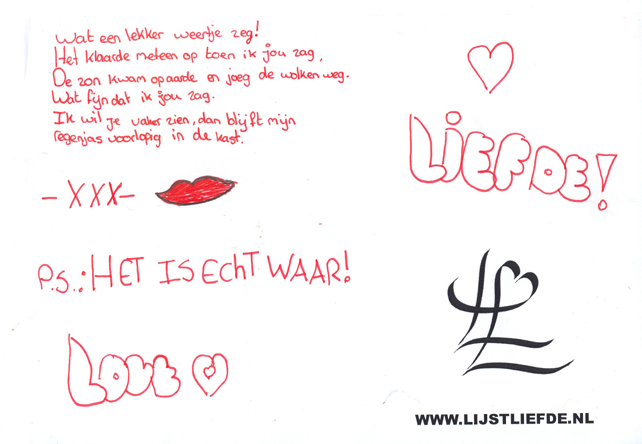 Wat een lekker weertje zeg!
Het klaarde meteen op toen ik jou zag,
De zon kwam opaarde en joeg de wolken weg.
Wat fijn dat ik jou zag.
Ik wil je vaker zien, dan blijft mijn
regenjas voorlopig in de kast.
- XXX -
P.S.: HET IS EchT WAAR!
Love
LiEFDE!
WWW.LIJSTLIEFDE.NL